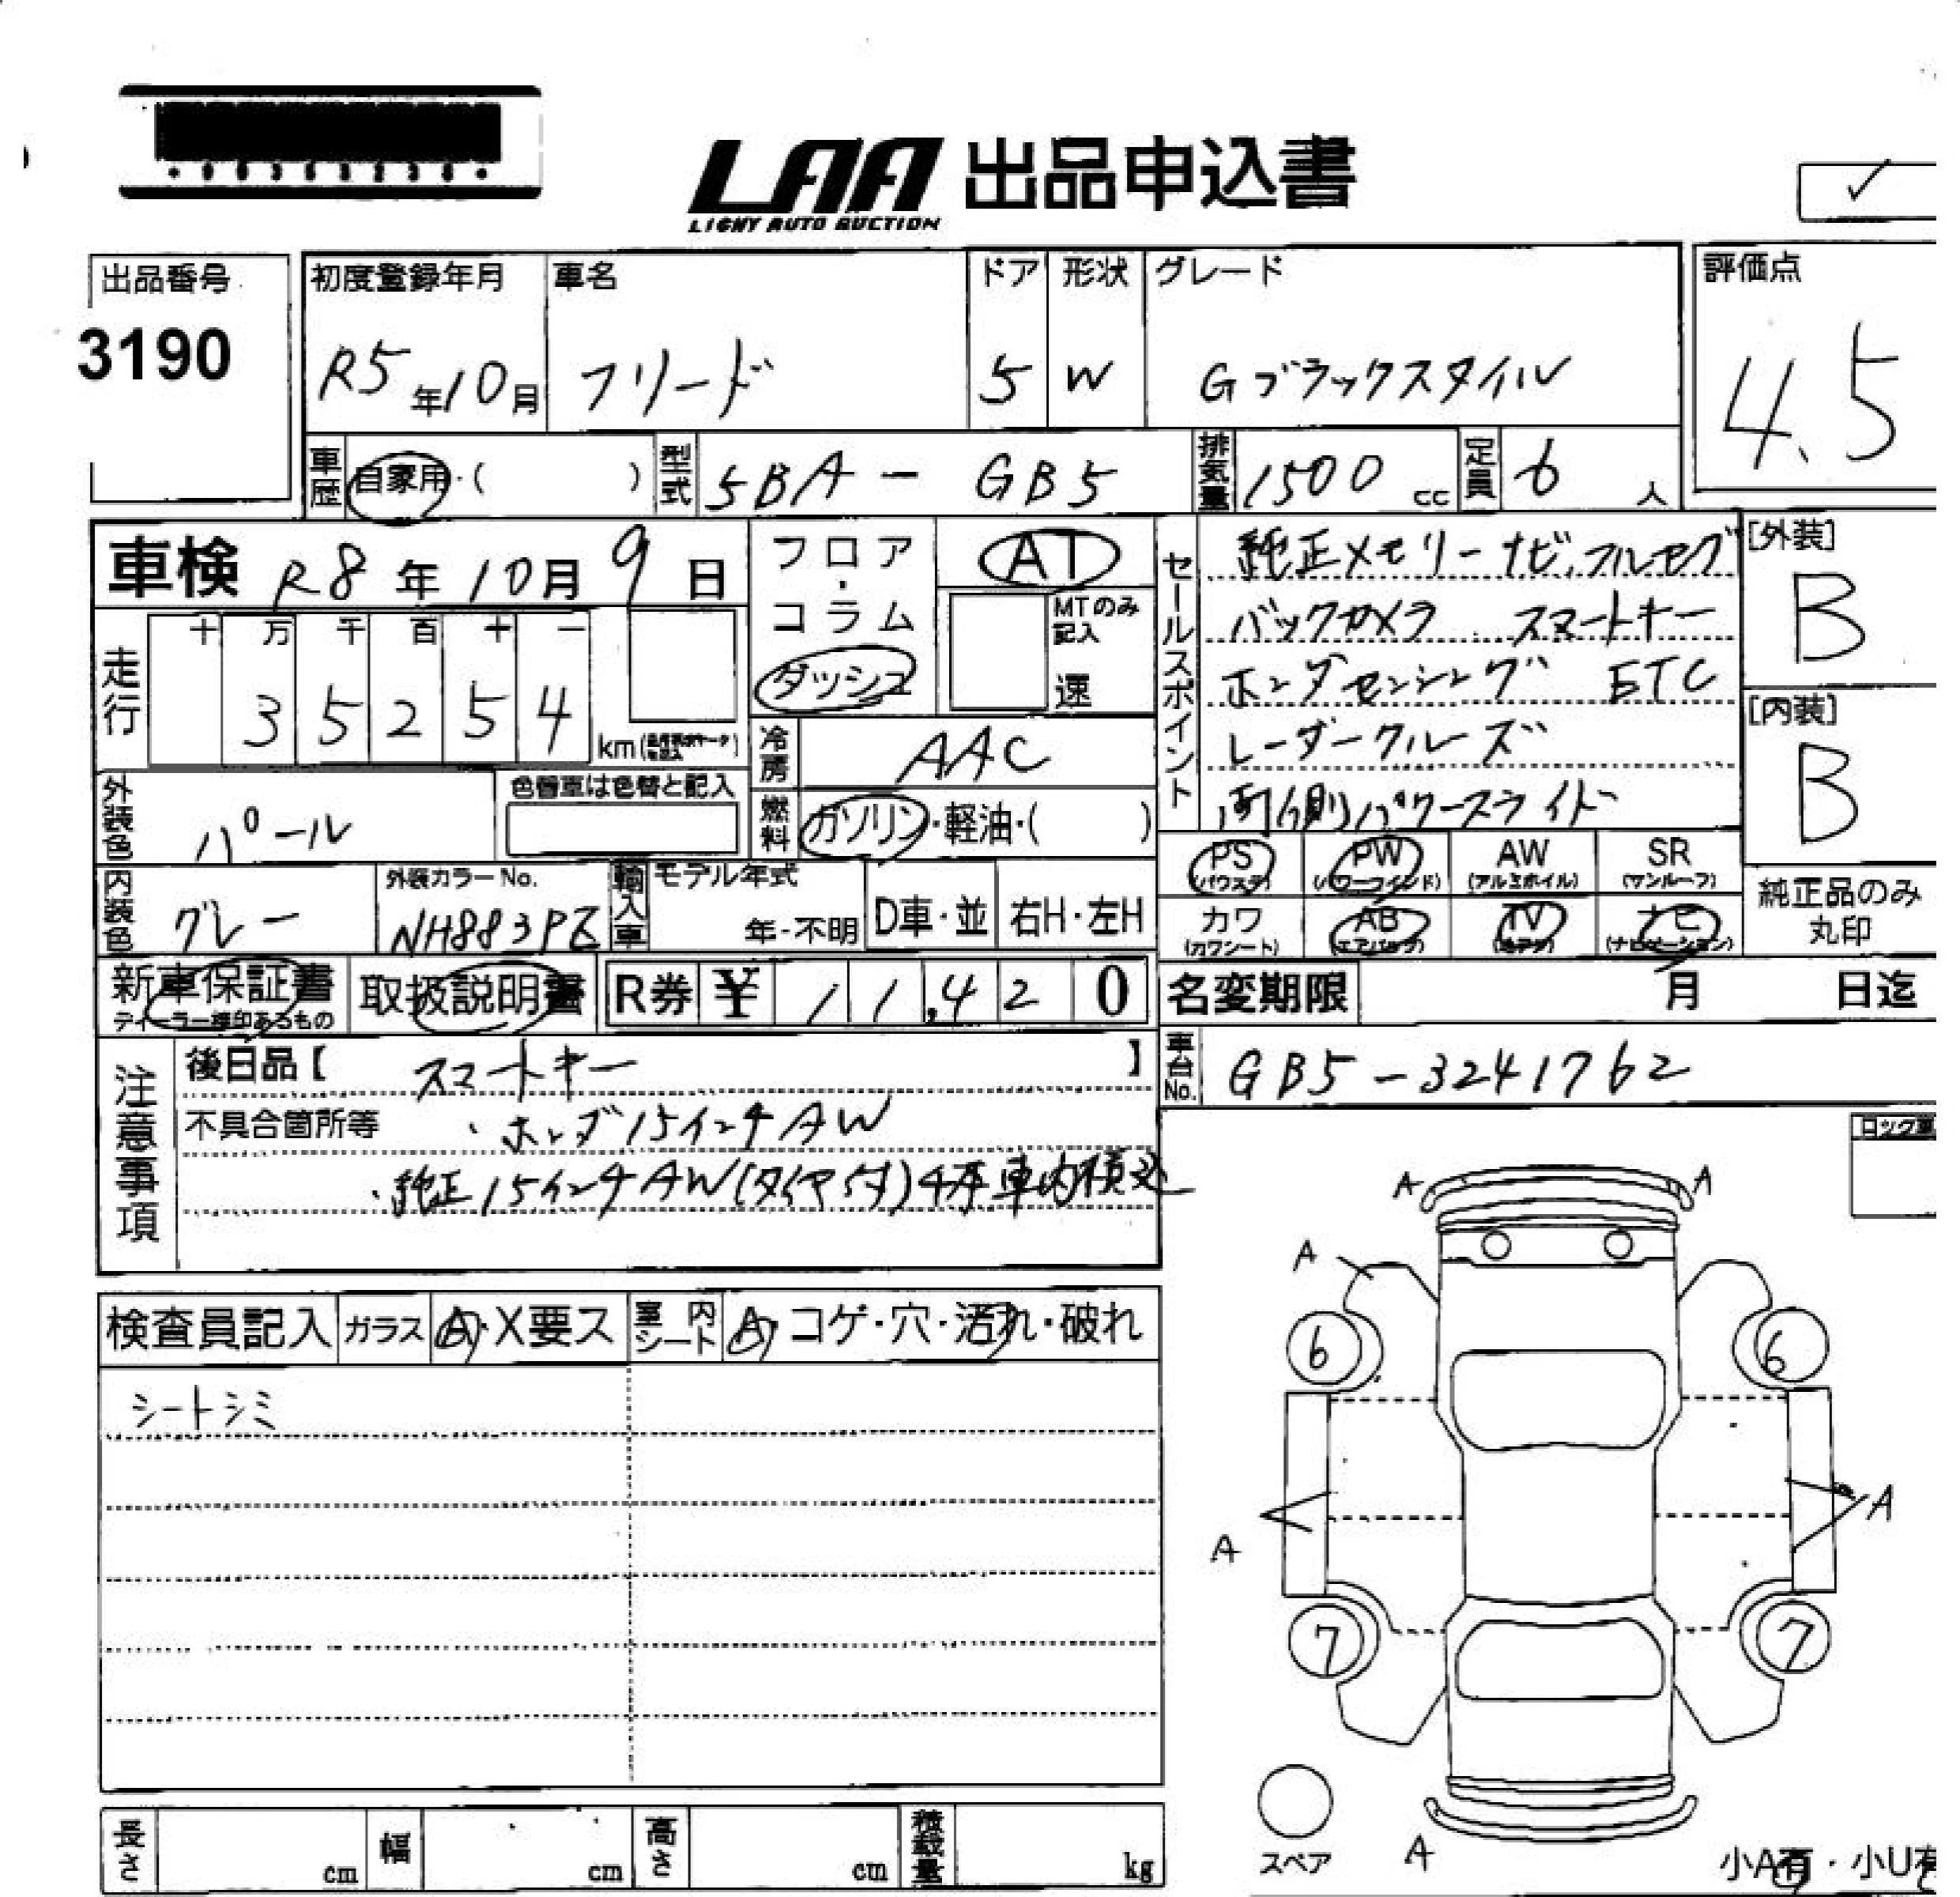 LAA 出品申込書
LIGHY AUTO AUCTION
✓
出品番号
3190
初度登録年月
R5年10月
車名
フリード
ドア
5
形状
W
グレード
Gブラックスタイル
評価点
4.5
車歴
自家用・( )
型式
5BA - GB5
排気量
1500 cc
定員
6 人
車検 R8年10月9日
走行
十 万 千 百 十 一
3 5 2 5 4 km
フロア・コラム
ダッシュ
AT
MTのみ記入
速
冷房
AAC
燃料
ガソリン・軽油・( )
セールスポイント
純正メモリーナビ、フルセグ
バックカメラ スマートキー
ホンダセンシング ETC
レーダークルーズ
両側パワースライド
[外装]
B
[内装]
B
外装色
パール
色替車は色替と記入
内装色
グレー
外装カラーNo.
NH883PZ
輸入車
モデル年式
年・不明
D車・並
右H・左H
PS (パワステ)
PW (パワーウインド)
AW (アルミホイル)
SR (サンルーフ)
カワ (カワシート)
AB (エアバッグ)
TV
ナビ (ナビゲーション)
純正品のみ
丸印
新車保証書
ディーラー様印あるもの
取扱説明書
R券 ¥ 11,420
名変期限 月 日迄
注意事項
後日品【 スマートキー 】
不具合箇所等 ・ホンダ15インチAW
・純正15インチAW(タイヤ付)4本車内積込
車台No.
GB5-3241762
検査員記入
ガラス A・X要ス
室内シート A・コゲ・穴・汚れ・破れ
シートシミ
A A
A
6 6
A A
7 7
スペア
A
小A有・小U有
長さ cm
幅 cm
高さ cm
積載量 kg